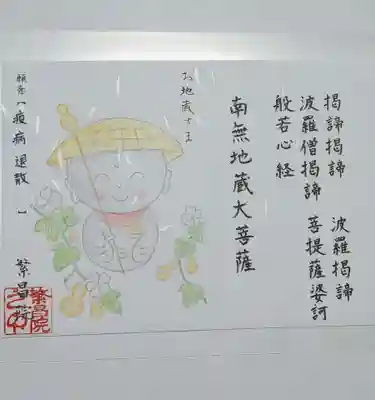 掲諦掲諦　波羅掲諦
波羅僧掲諦　菩提薩婆訶
般若心経
南無地蔵大菩薩
お地蔵さま
願意【疫病退散　】
繁昌院
繁昌院